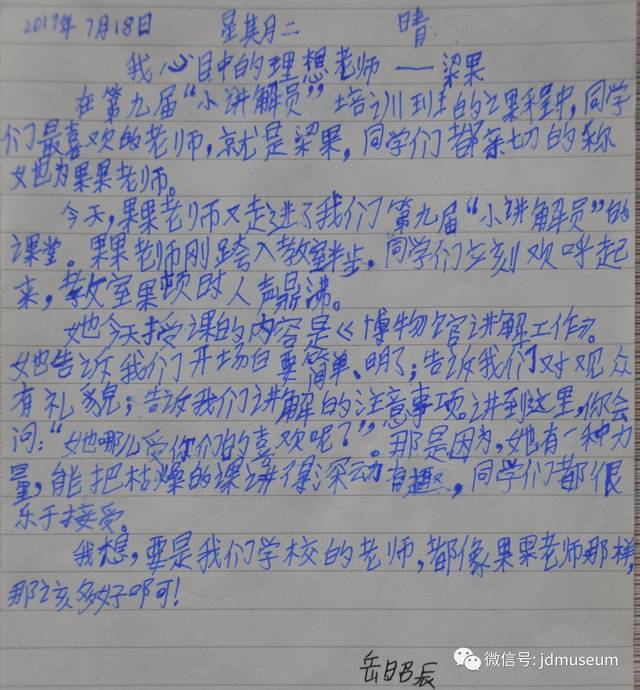 2017年7月18日 星期二 晴
我心目中的理想老师——梁果
在第九届“小讲解员”培训班的课程中,同学
们最喜欢的老师,就是梁果,同学们都亲切的称
她为果果老师。
今天,果果老师又走进了我们第九届“小讲解员”的
课堂。果果老师刚跨入教室半步,同学们立刻欢呼起
来,教室里顿时人声鼎沸。
她今天授课的内容是《博物馆讲解工作》。
她告诉我们开场白要简单、明了;告诉我们对观众
有礼貌;告诉我们讲解的注意事项。讲到这里,你会
问:“她哪儿受你们的喜欢呢?”。那是因为,她有一种力
量,能把枯燥的课讲得深动有趣,同学们都很
乐于接受。
我想,要是我们学校的老师,都像果果老师那样,
那该多好啊!
岳昭辰
微信号: jdmuseum